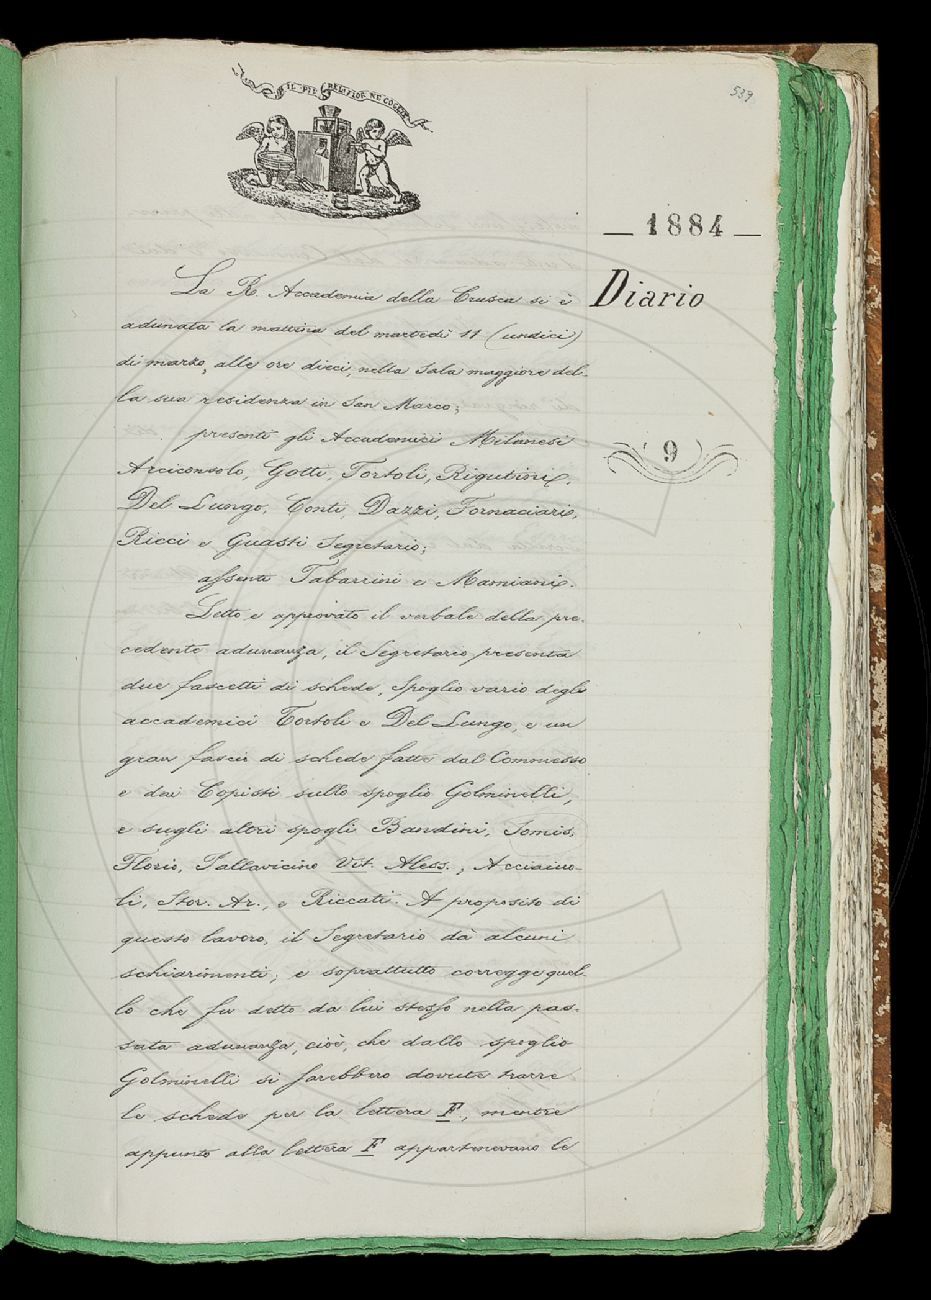 IL PIÙ BEL FIOR NE COGLIE
539
— 1884 —
Diario
9
La R. Accademia della Crusca si è
adunata la mattina del martedì 11 (undici)
di marzo, alle ore dieci, nella Sala maggiore del-
la sua residenza in San Marco;
presenti gli Accademici Milanesi
Arciconsolo, Gotti, Tortoli, Rigutini,
Del Lungo, Conti, Dazzi, Fornaciari,
Ricci e Guasti Segretario;
assenti Tabarrini e Mamiani.
Letto e approvato il verbale della pre-
cedente adunanza, il Segretario presenta
due fascetti di schede, Spoglio vario degli
accademici Tortoli e Del Lungo, e un
gran fascio di schede fatte dal Commesso
e dai Copisti sullo spoglio Golminelli,
e sugli altri spogli Bandini, Tomis,
Florio, Pallavicino Vit. Aless., Acciaiuo-
li, Stor. Ar., e Riccati. A proposito di
questo lavoro, il Segretario dà alcuni
schiarimenti; e soprattutto corregge quel-
lo che fu detto da lui stesso nella pas-
sata adunanza, cioè, che dallo spoglio
Golminelli si sarebbero dovute trarre
le schede per la lettera F, mentre
appunto alla lettera F appartenevano le